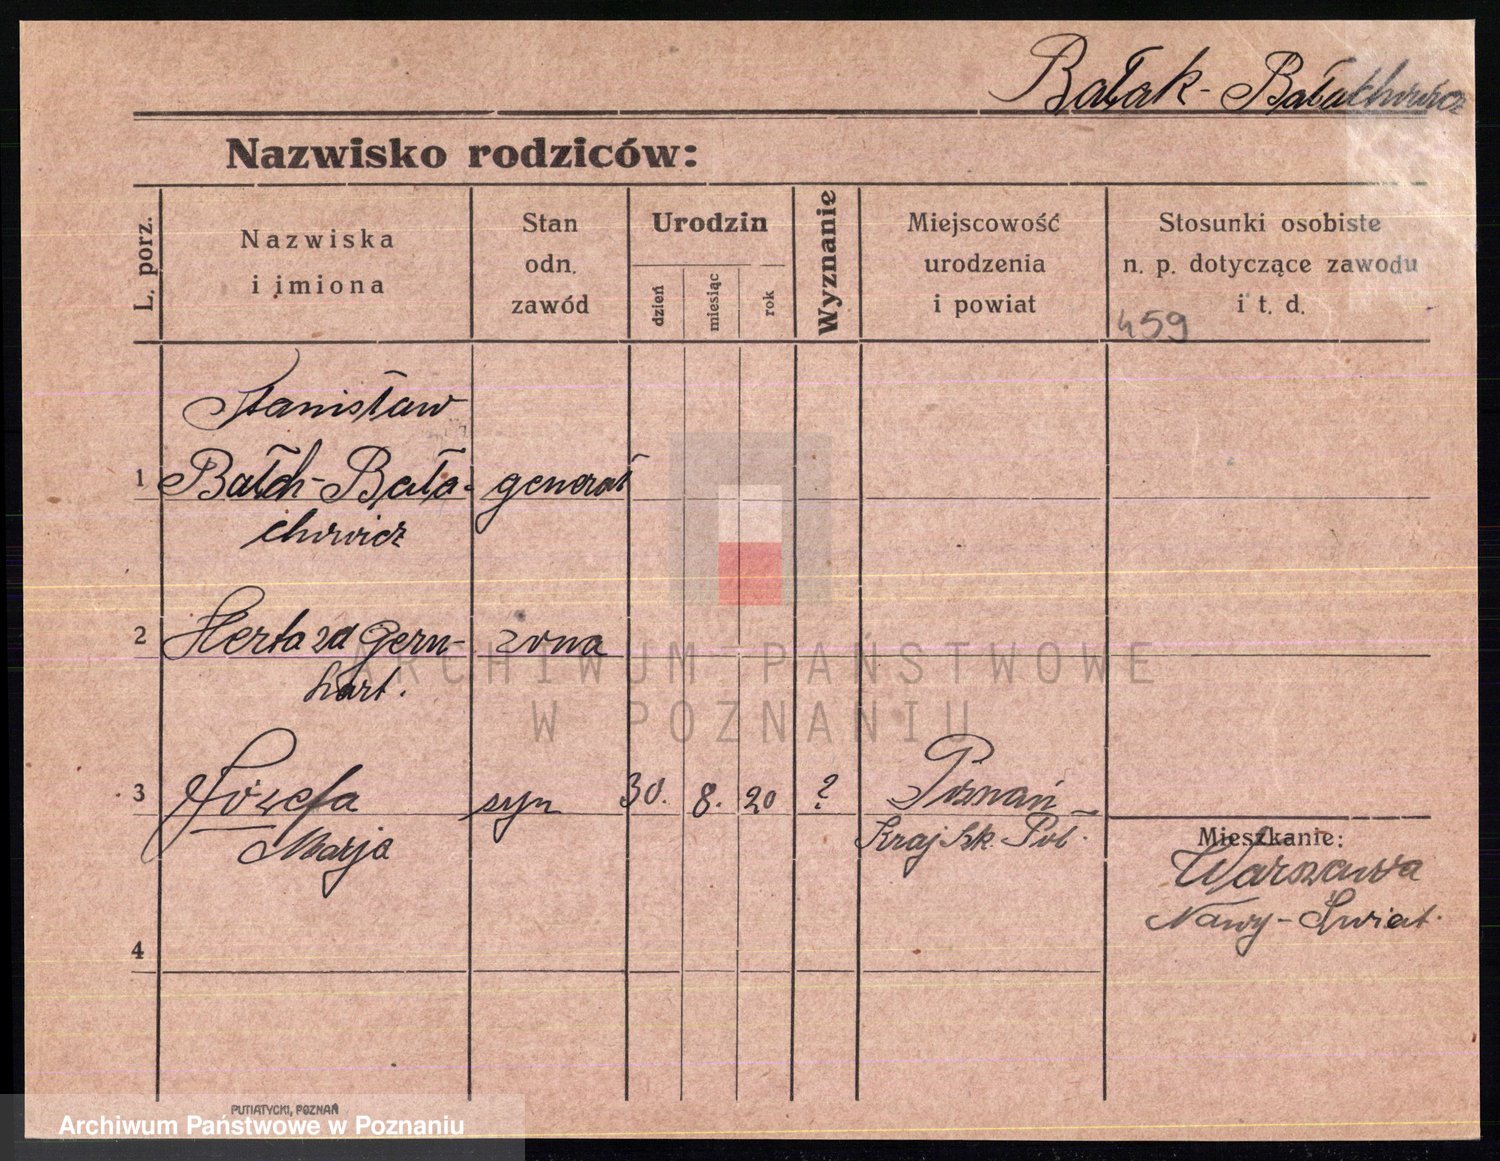 Bałak-Bałachowicz
Nazwisko rodziców:
L. porz.
Nazwiska
i imiona
Stan
odn.
zawód
Urodzin
dzień
miesiąc
rok
Wyznanie
Miejscowość
urodzenia
i powiat
Stosunki osobiste
n. p. dotyczące zawodu
i t. d.
459
Stanisław
1 Bałch-Bała- generał
chowicz
2 Herta zd Gern- żona
hart.
3 Józefa syn 30. 8. 20 ? Poznań
Marja
Mieszkanie:
Warszawa
Nowy-Świat.
4
ARCHIWUM PAŃSTWOWE
W POZNANIU
PUTIATYCKI, POZNAŃ
Archiwum Państwowe w Poznaniu